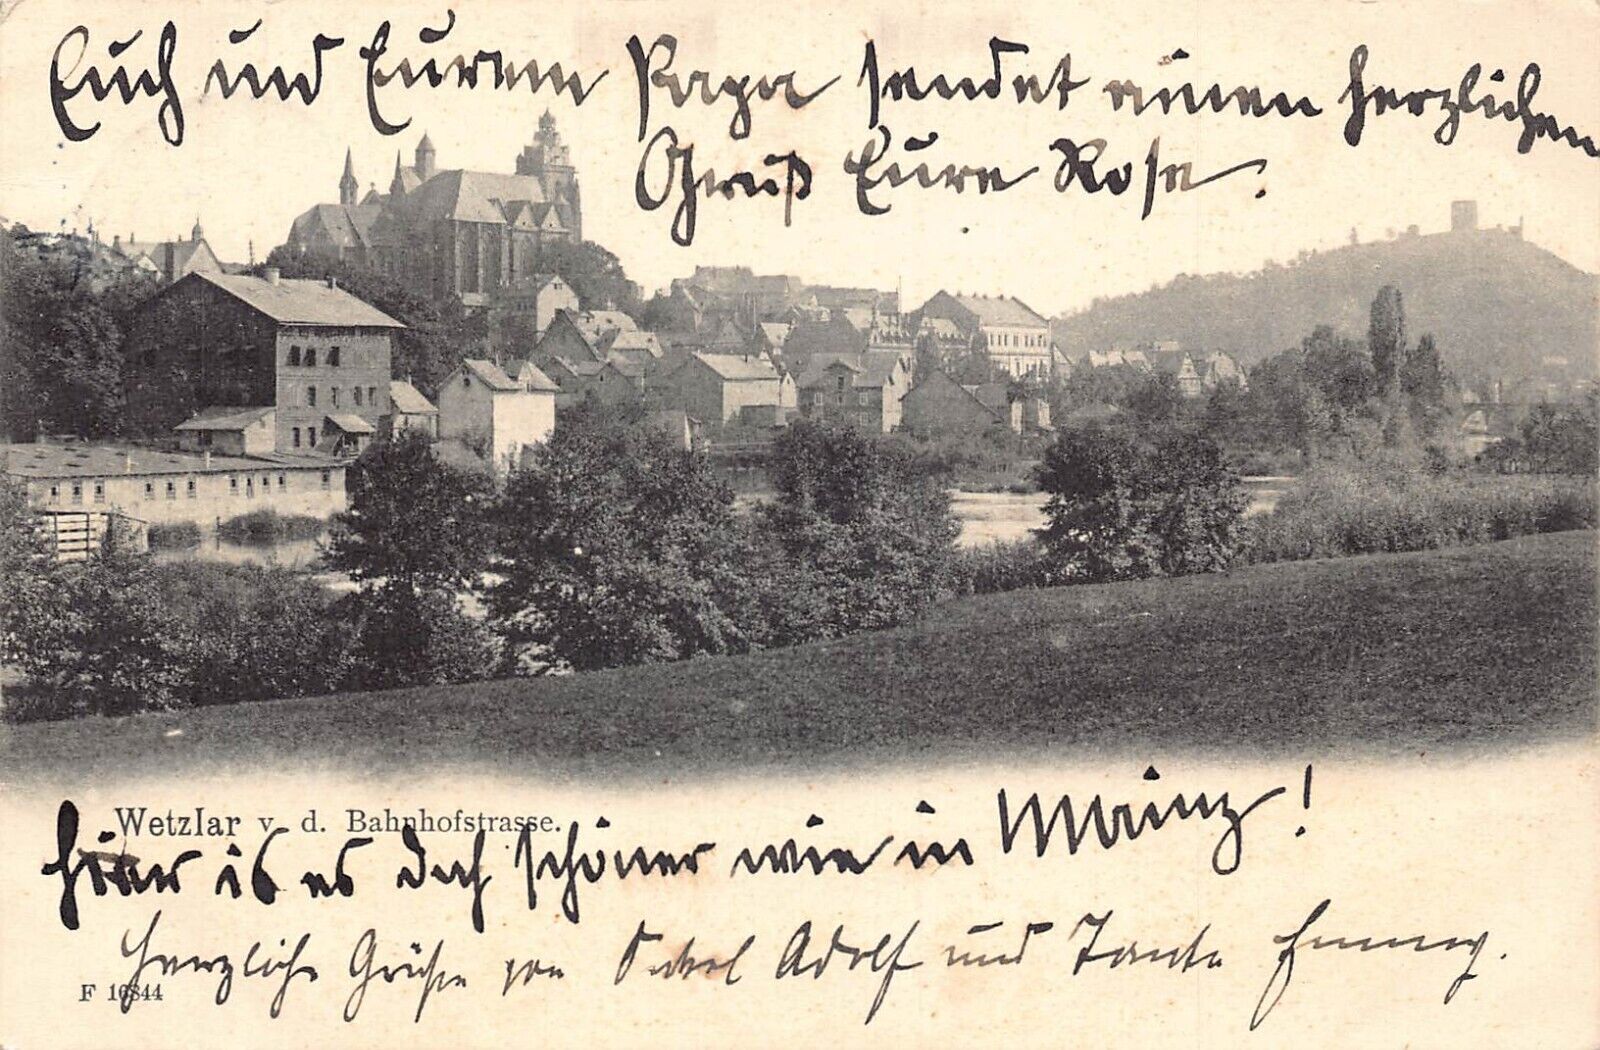 Euch und Eurem Papa sendet einen herzlichen
Gruß Eure Rose.
Wetzlar v. d. Bahnhofstrasse.
hier is es doch schöner wie in Mainz!
Herzliche Grüße von Onkel Adolf und Tante Emmy.
F 16844